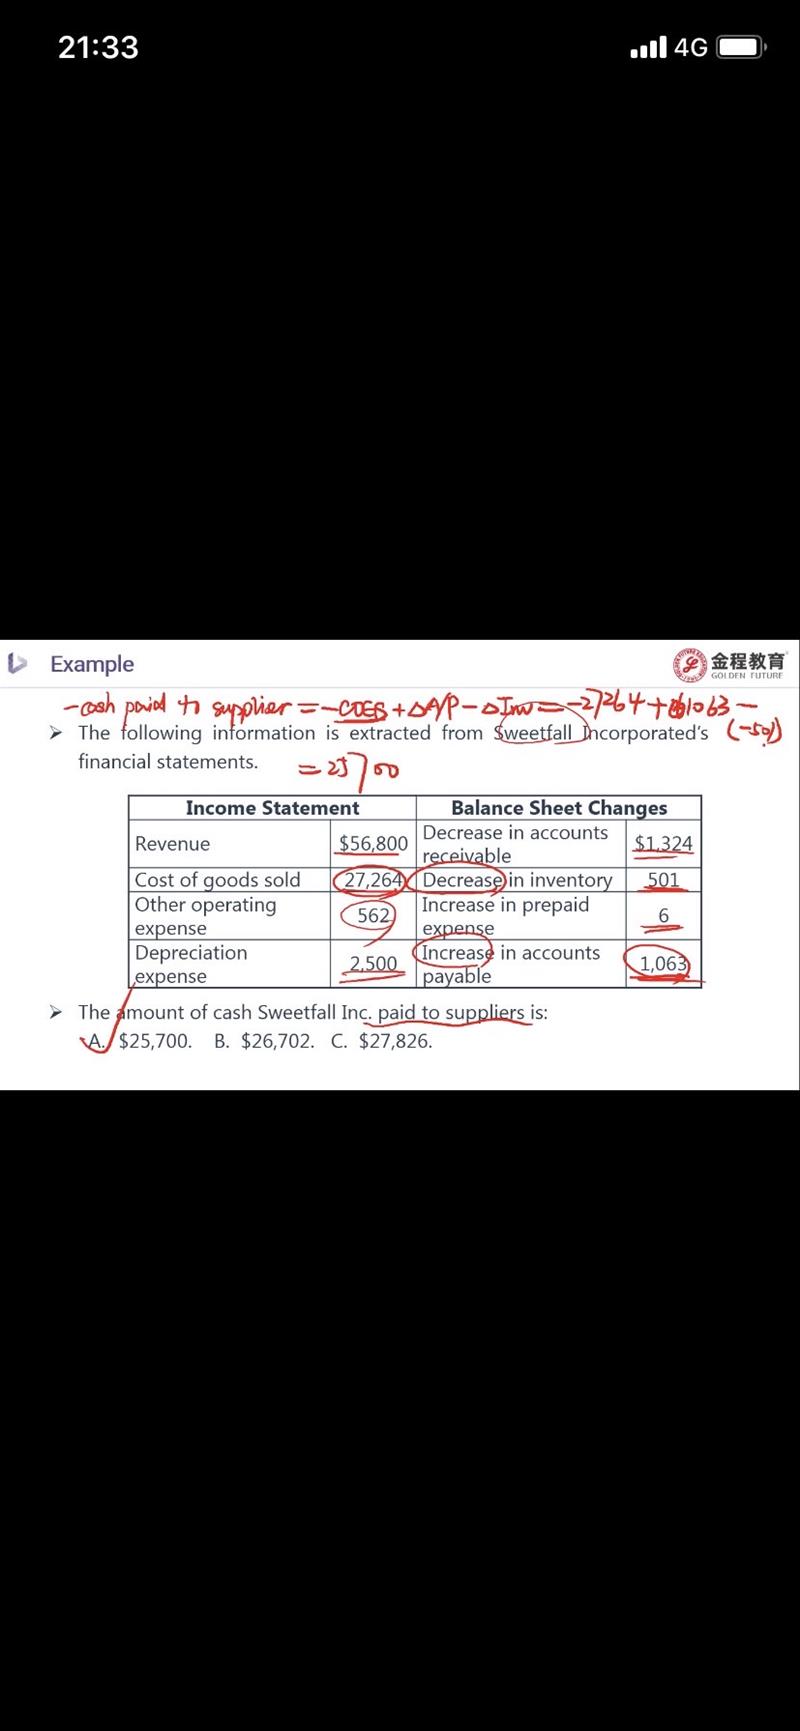 21:33
4G
Example
金程教育
GOLDEN FUTURE
-cash paid to supplier = -COGS + ΔA/P - ΔInv = -27264 + 1063 - (-501)
The following information is extracted from Sweetfall Incorporated's
financial statements.
= 25700
Income Statement Balance Sheet Changes
Revenue $56,800 Decrease in accounts receivable $1,324
Cost of goods sold 27,264 Decrease in inventory 501
Other operating expense 562 Increase in prepaid expense 6
Depreciation expense 2,500 Increase in accounts payable 1,063
The amount of cash Sweetfall Inc. paid to suppliers is:
A. $25,700. B. $26,702. C. $27,826.